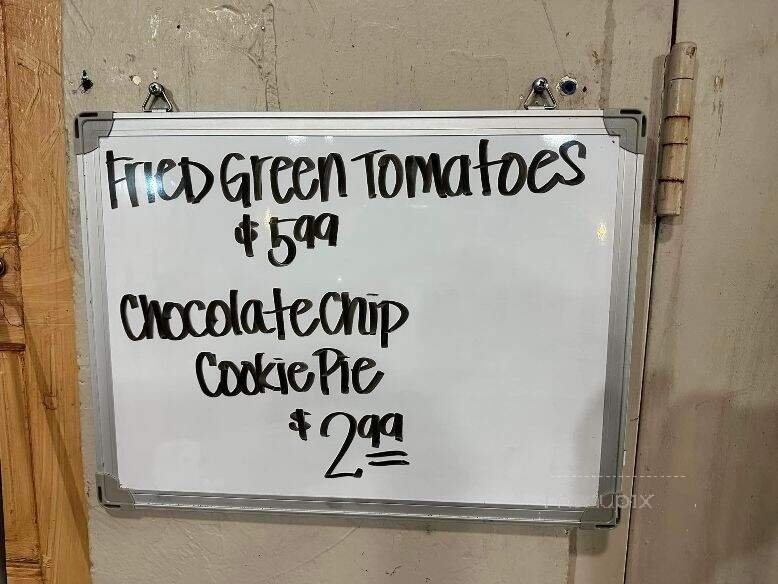 Fried Green Tomatoes
$5.99
Chocolate Chip
Cookie Pie
$2.99